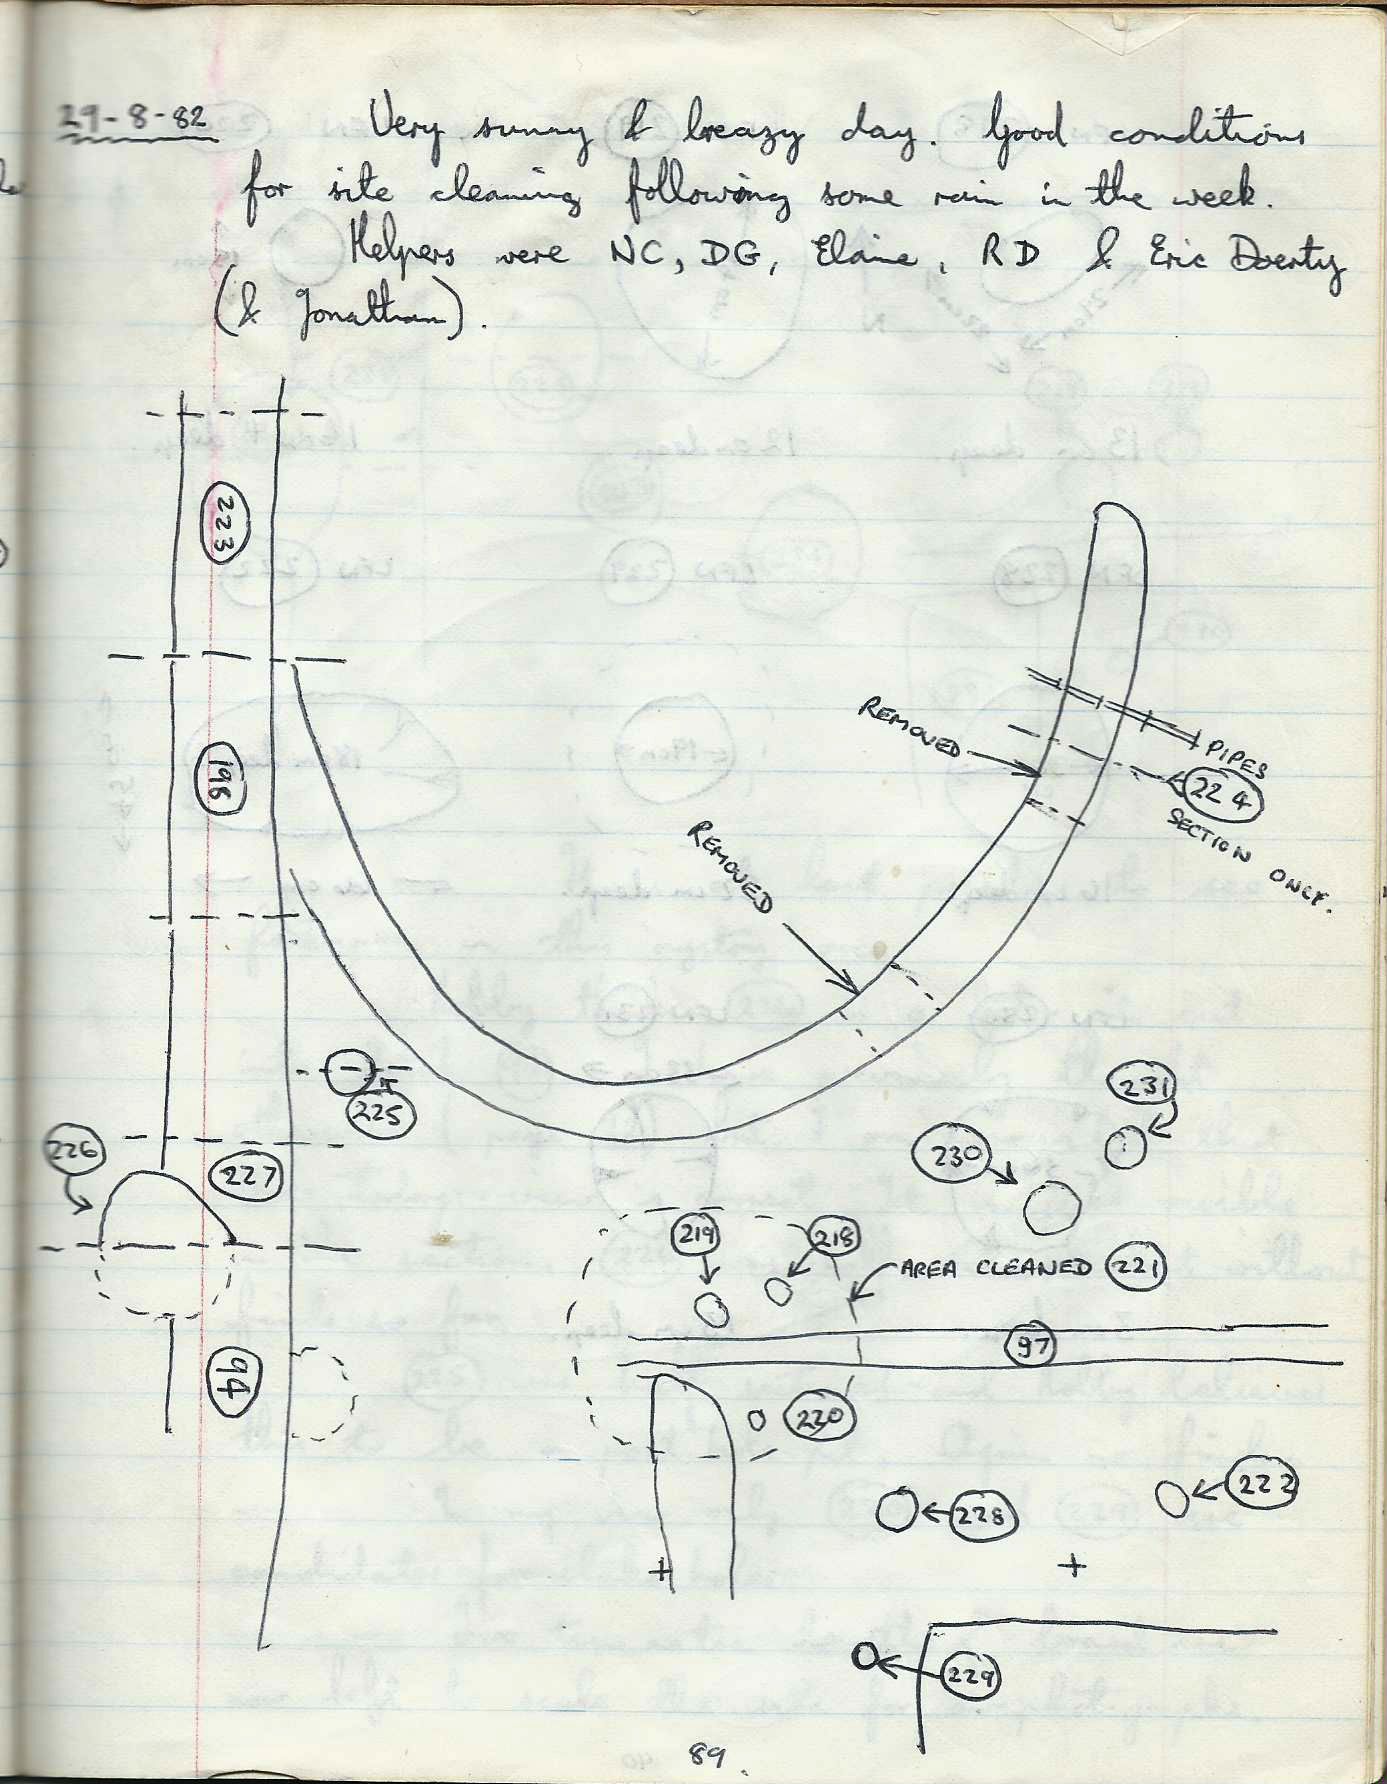 29-8-82 Very sunny & breazy day. Good conditions
for site cleaning following some rain in the week.
Helpers were NC, DG, Elaine, RD & Eric Doerty
(& Jonathan).
223
196
REMOVED
PIPES
224
SECTION ONLY.
REMOVED
225
226
227
231
230
219
218
AREA CLEANED 221
97
94
220
222
228
229
89.